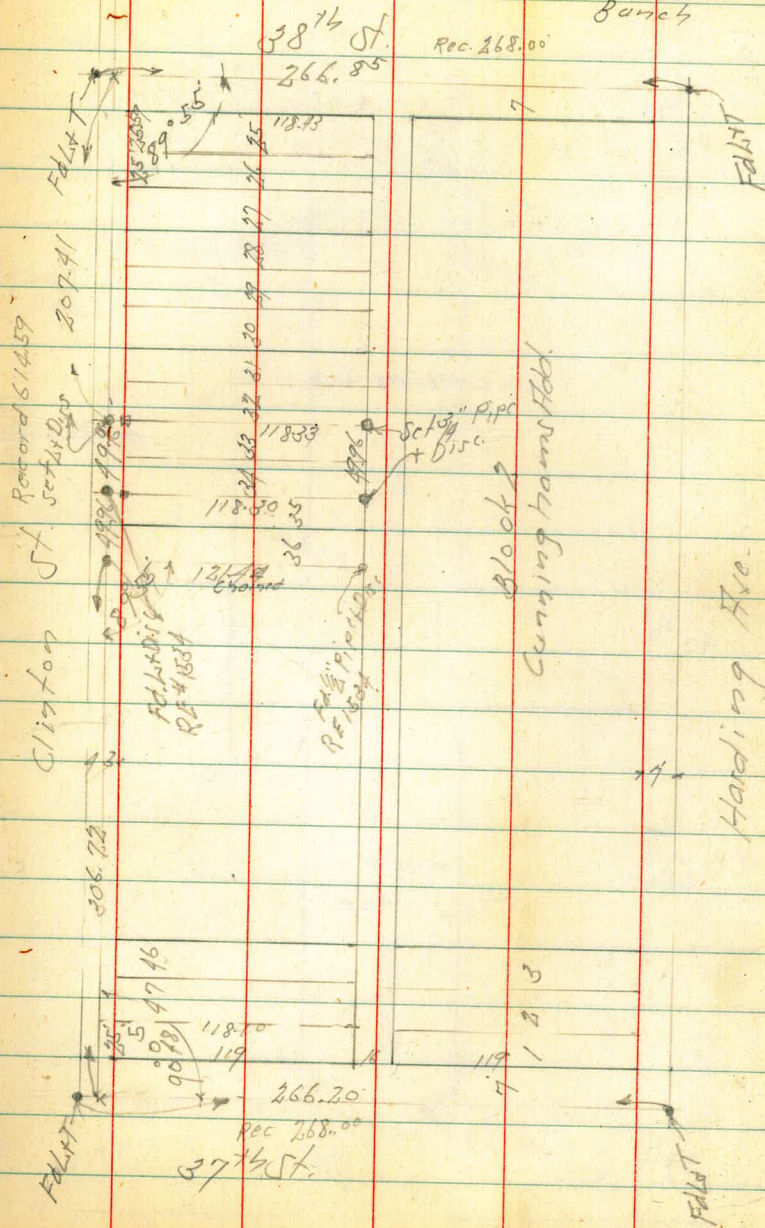 Bunch
38th St.
Rec. 268.00
266.85
Fd L+T
Fd L+T
89° 55'
118.43
7
25
26
27
28
29
30
31
32
33
34
35
36
207.41
Record 614.59
Set L+Disc
Clinton St.
49.96
49.96
118.33
49.96
Set 3/4" Pipe
+ Disc.
118.30
121.44
Chained
Fd. L+Disc
RE #1534
Fd 1/2" Pipe + Disc
RE 1534
Block 7
Cunninghams Add.
Harding Ave.
3
7
306.72
46
47
48
25'
90° 5'
118.10
119
16
119
1 2 3
7
266.20
Rec 268.00
37th St.
Fd L+T
Fd L+T